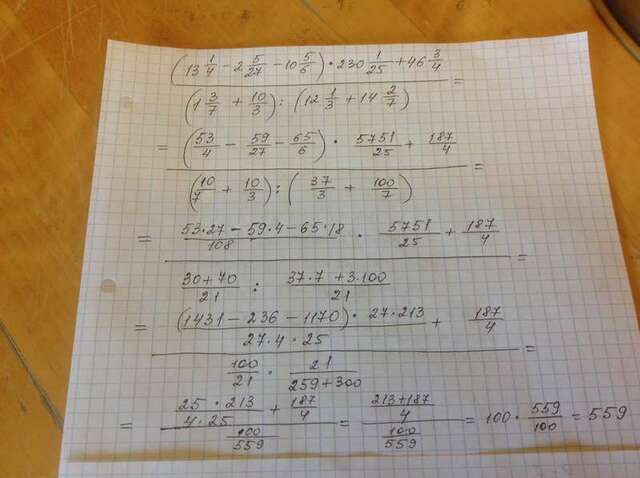 (13 1/4 - 2 5/27 - 10 5/6) · 230 1/25 + 46 3/4
=
(1 3/7 + 10/3) : (12 1/3 + 14 2/7)
= (53/4 - 59/27 - 65/6) · 5751/25 + 187/4
=
(10/7 + 10/3) : (37/3 + 100/7)
= 53·27 - 59·4 - 65·18 / 108 · 5751/25 + 187/4
=
30+70/21 : 37·7 + 3·100/21
= (1431 - 236 - 1170) · 27·213 / 27·4·25 + 187/4
=
100/21 · 21/259+300
= 25·213/4·25 + 187/4 / 100/559 = 213+187/4 / 100/559 = 100 · 559/100 = 559